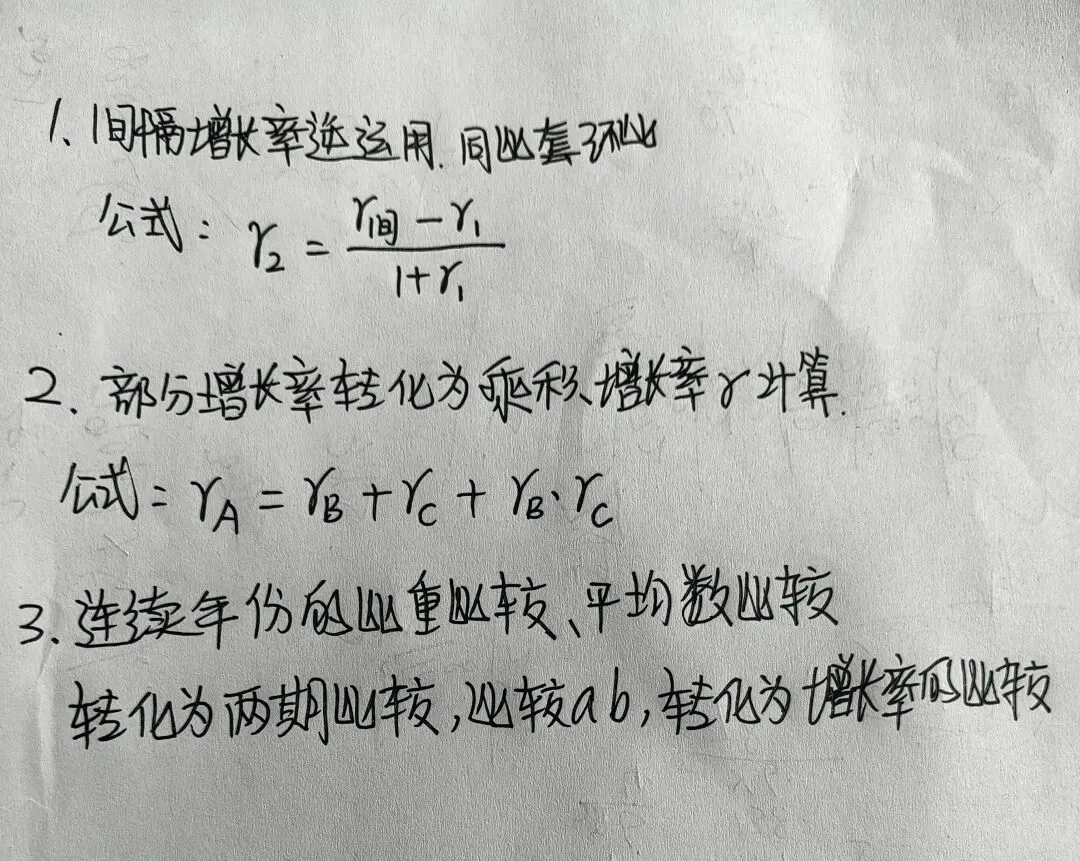 1、间隔增长率逆运用.同比套环比
公式：r₂ = (r间 - r₁)/(1+r₁)
2、部分增长率转化为乘积增长率r计算.
公式：r_A = r_B + r_C + r_B·r_C
3.连续年份的比重比较、平均数比较
转化为两期比较,比较ab,转化为增长率的比较